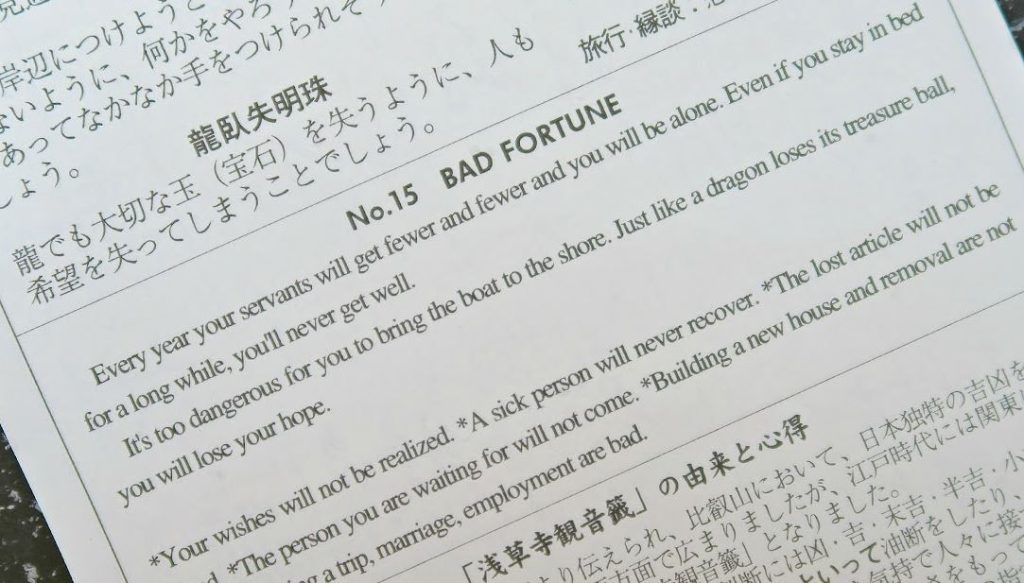 岸辺につけようと
ないように、何かをやろう
あってなかなか手をつけられそう
しょう。
旅行・縁談:悪
龍臥失明珠
龍でも大切な玉(宝石)を失うように、人も
希望を失ってしまうことでしょう。
No.15 BAD FORTUNE
Every year your servants will get fewer and fewer and you will be alone. Even if you stay in bed
for a long while, you'll never get well.
It's too dangerous for you to bring the boat to the shore. Just like a dragon loses its treasure ball,
you will lose your hope.
*Your wishes will not be realized. *A sick person will never recover. *The lost article will not be
*The person you are waiting for will not come. *Building a new house and removal are not
a trip, marriage, employment are bad.
「浅草寺観音籤」の由来と心得
より伝えられ、比叡山において、日本独特の吉凶を
方面で広まりましたが、江戸時代には関東
観音籤」となりました。
には凶・吉・末吉・半吉・小
といって油断をしたり、
気持で人々に接